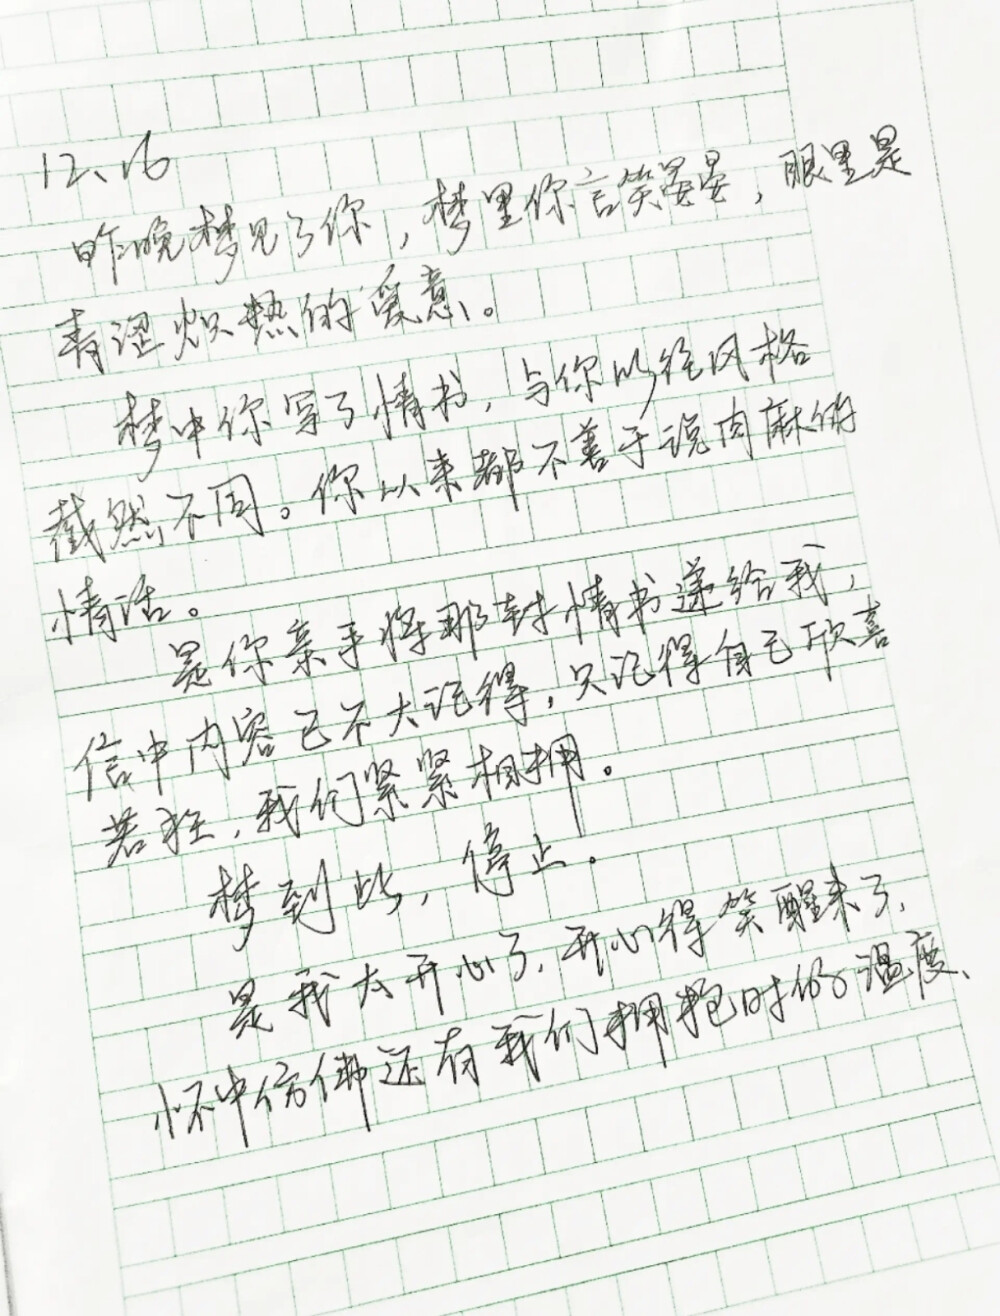 12、16
昨晚梦见了你，梦里你言笑晏晏，眼里是
青涩炽热的爱意。
梦中你写了情书，与你以往风格
截然不同。你以来都不善于说肉麻的
情话。
是你亲手将那封情书递给我，
信中内容已不大记得，只记得自己欣喜
若狂，我们紧紧相拥。
梦到此，停止。
是我太开心了，开心得笑醒来了，
怀中仿佛还有我们拥抱时的温度、